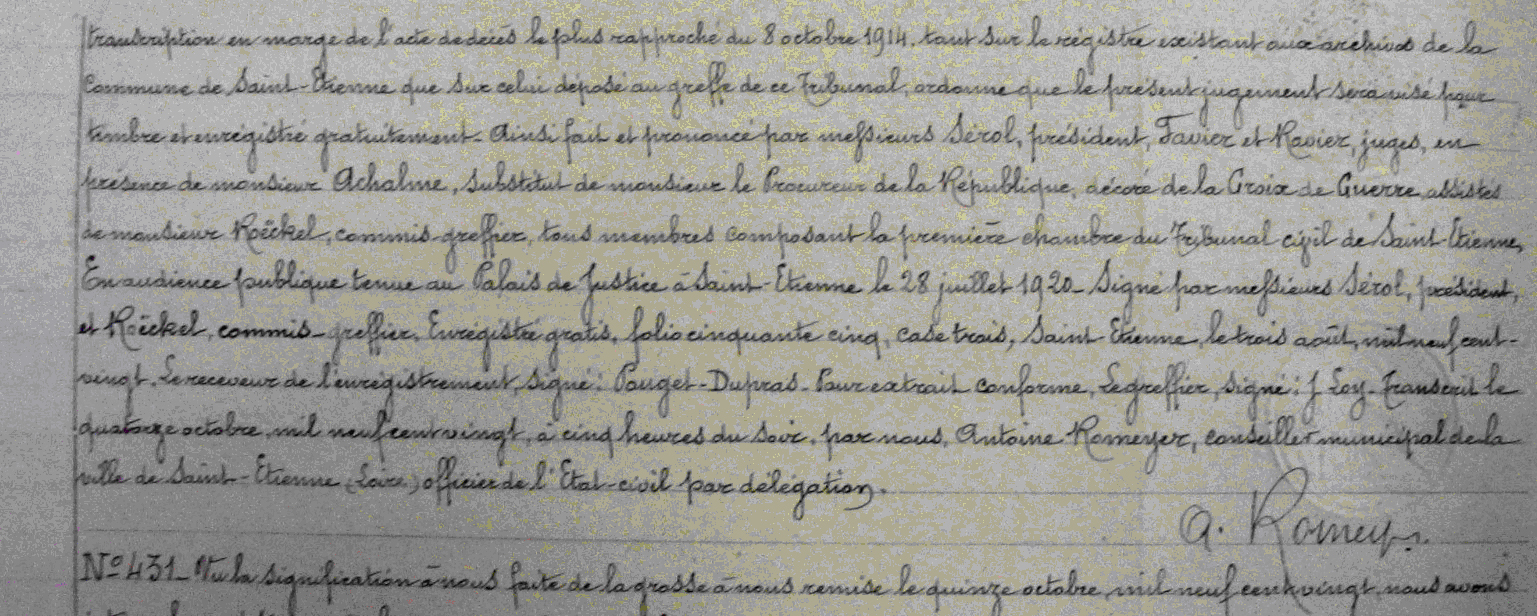 transcription en marge de l'acte de décès le plus rapproché du 8 octobre 1914. tant sur le régistre existant aux archives de la
Commune de Saint-Etienne que sur celui déposé au greffe de ce Tribunal, ordonne que le présent jugement sera visé pour
timbre et enrégistré gratuitement. Ainsi fait et prononcé par messieurs Sérol, président, Favier et Ravier, juges, en
présence de monsieur Achalme, substitut de monsieur le Procureur de la République, décoré de la Croix de Guerre, assistés
de monsieur Roëckel, commis-greffier, tous membres composant la première chambre du Tribunal civil de Saint-Etienne,
En audience publique tenue au Palais de Justice à Saint-Etienne le 28 juillet 1920_ Signé par messieurs Sérol, président,
et Roëckel, commis-greffier. Enrégistré gratis, folio cinquante cinq, case trois, Saint-Etienne, le trois août, mil neuf cent-
vingt. Le receveur de l'enrégistrement, signé: Pouget-Dupras. Pour extrait conforme, Le greffier, signé: J Loy. Transcrit le
quatorze octobre, mil neuf cent vingt, à cinq heures du soir, par nous, Antoine Romeyer, conseiller municipal de la
ville de Saint-Etienne (Loire) officier de l'Etat-civil par délégation.
A. Romeyer
N° 431_ Vu la signification à nous faite de la grosse à nous remise le quinze octobre, mil neuf cent vingt, nous avons